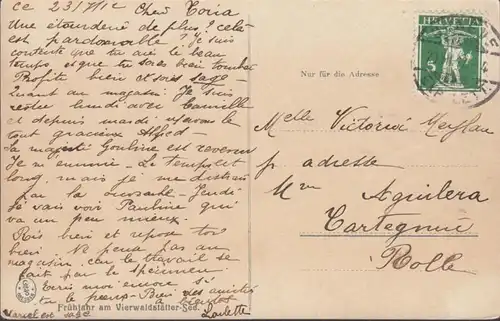 ce 23/VII 12 Cher Toria
Une étourderie de plus? celà
est pardonnable. Je suis
contente que tu aies le beau
temps et que tu sois bien tombée
Profite bien et sois sage
Quant au magasin. Je suis
restée lundi avec Camille
et depuis mardi le
tout gracieux Alfred.
Sa majesté Gouline est revenue
Je m'ennuie. Le temps est
long mais je me distrais
par la Jeudi
Je vais voir Pauline qui
va un peu mieux.
Ris bien et repose toi
bien. Ne pense pas au
magasin car le travail se
fait par le spécimen
Ecris moi encore si
tu le peux. Bien des amitiés
à bientôt
Laulette
Marcel est sage
HELVETIA
5
Nur für die Adresse
Melle Victoria
pr adresse
Mme Aguilera
Tartegnin
Rolle
Frühjahr am Vierwaldstätter-See.